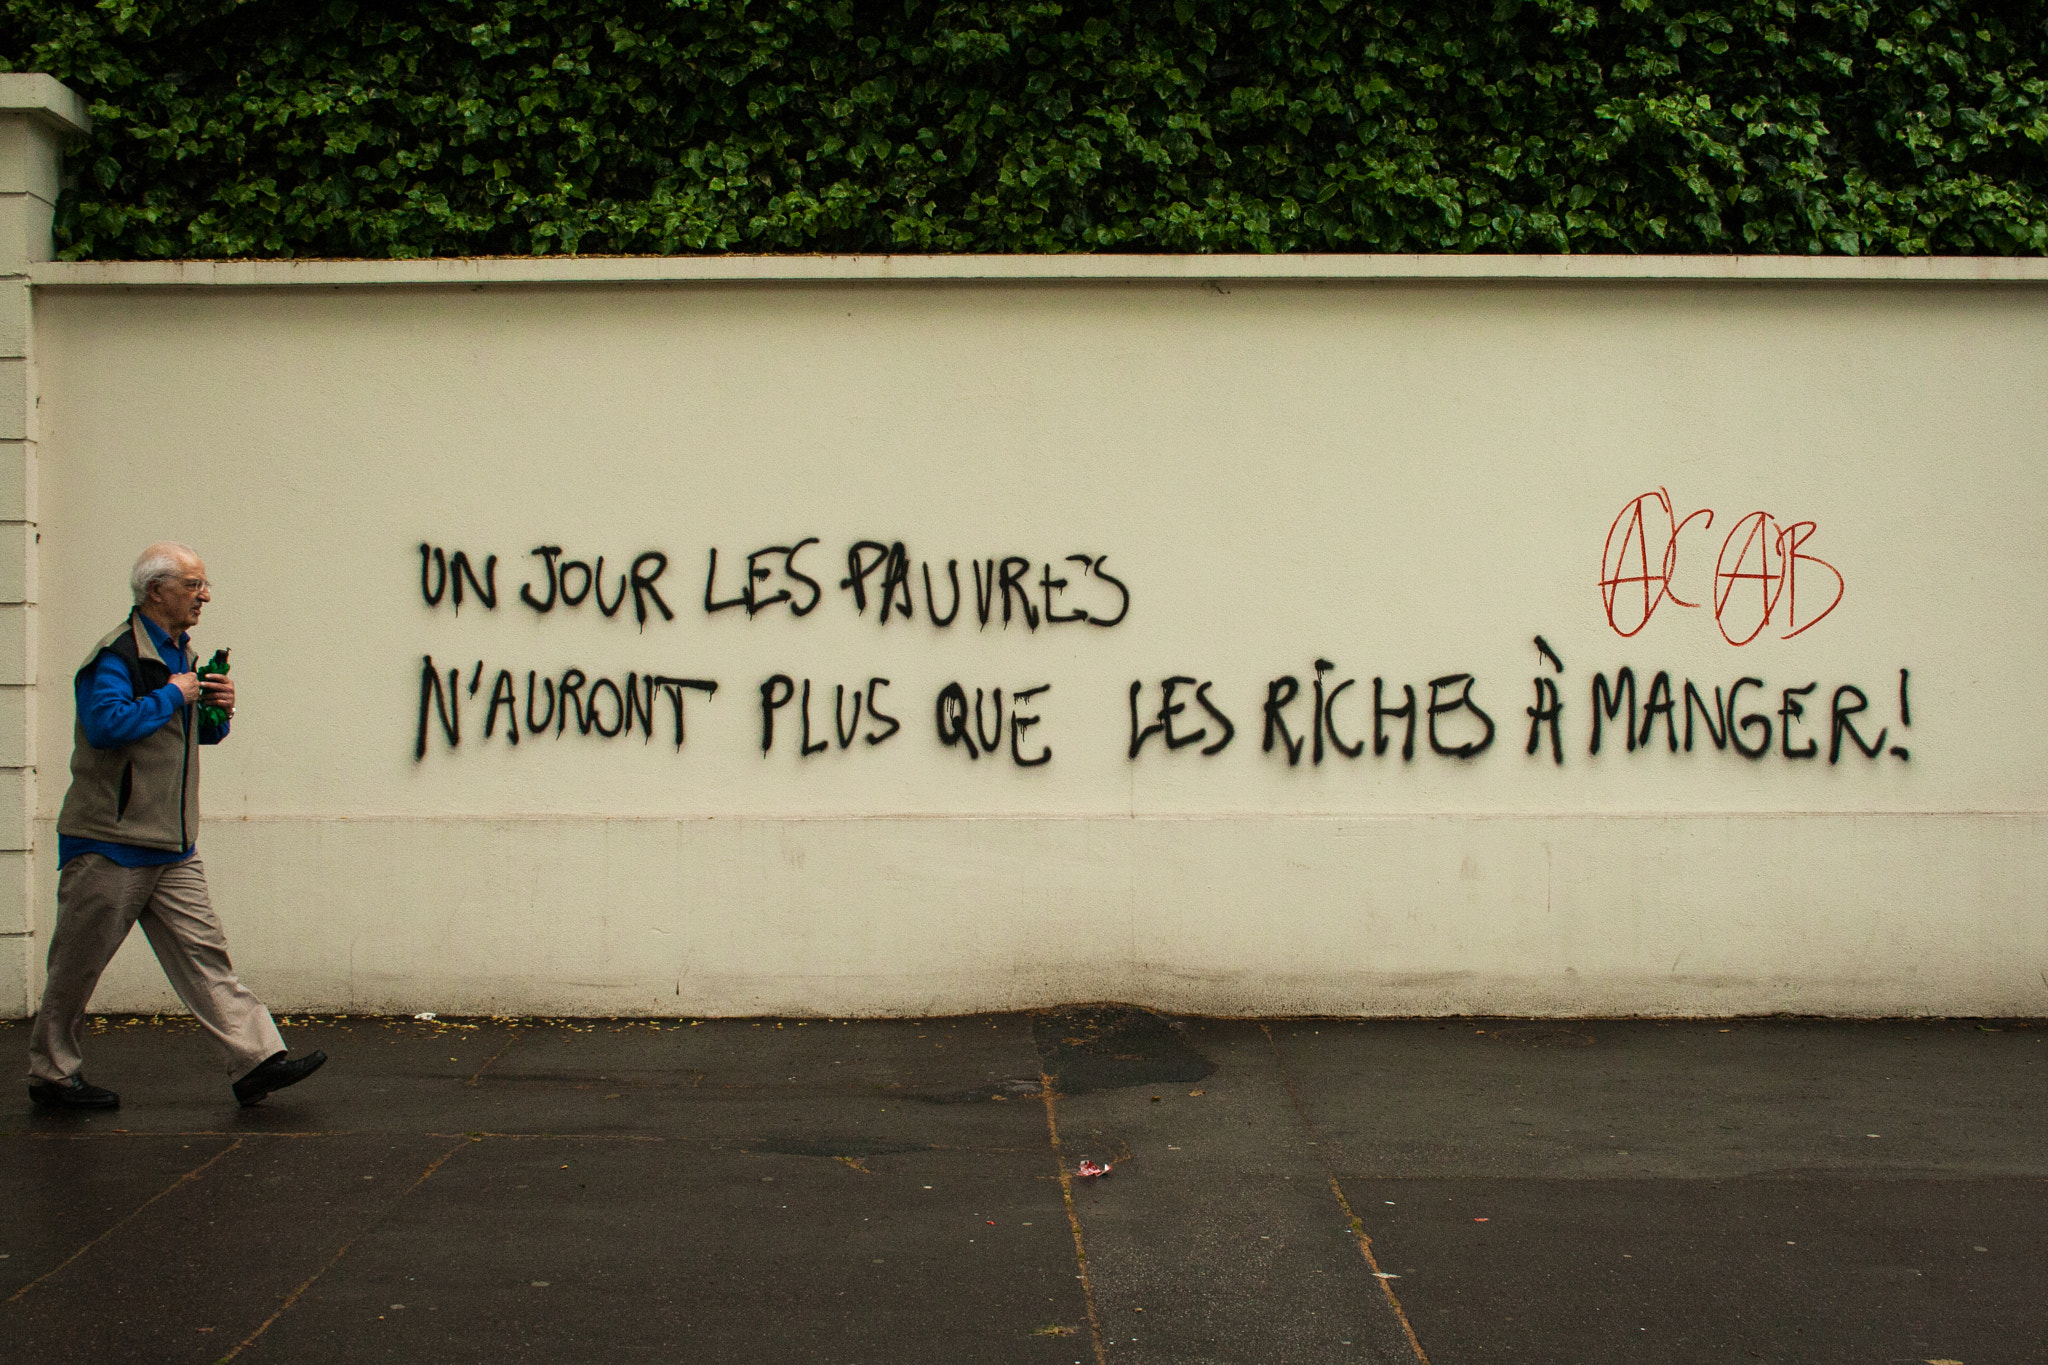 UN JOUR LES PAUVRES
N'AURONT PLUS QUE LES RICHES À MANGER!
ACAB